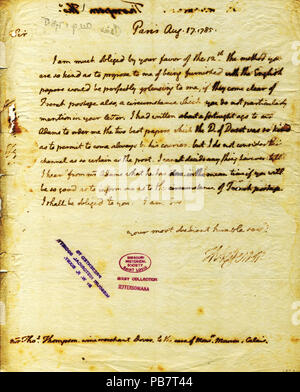 Thompson Tho.
Sir
Paris Aug. 17. 1785.
I am much obliged by your favor of the 12th. the method you
are so kind as to propose to me of being furnished with the English
papers would be perfectly pleasing to me, if they come clear of
French postage, also a circumstance which you do not particularly
mention in your letter. I had written about a fortnight ago to mr
Adams to order me the two best papers which the D. of Dorset was so kind
as to permit to come always by his courier. but I do not consider this
channel as so certain as the post. I can not decide any thing however till
I hear from mr Adams what he has done. in the mean time if you will
be so good as to inform me as to the circumstance of French postage
I shall be obliged to you. I am Sir
your most obedient humble servt.
Th: Jefferson
MISSOURI
HISTORICAL
SOCIETY
SAINT LOUIS
BIXBY COLLECTION
JEFFERSONIANA
Thos. Thompson, wine merchant Dover, to the care of Calais.
alamy
Image ID: PB7T44
www.alamy.com